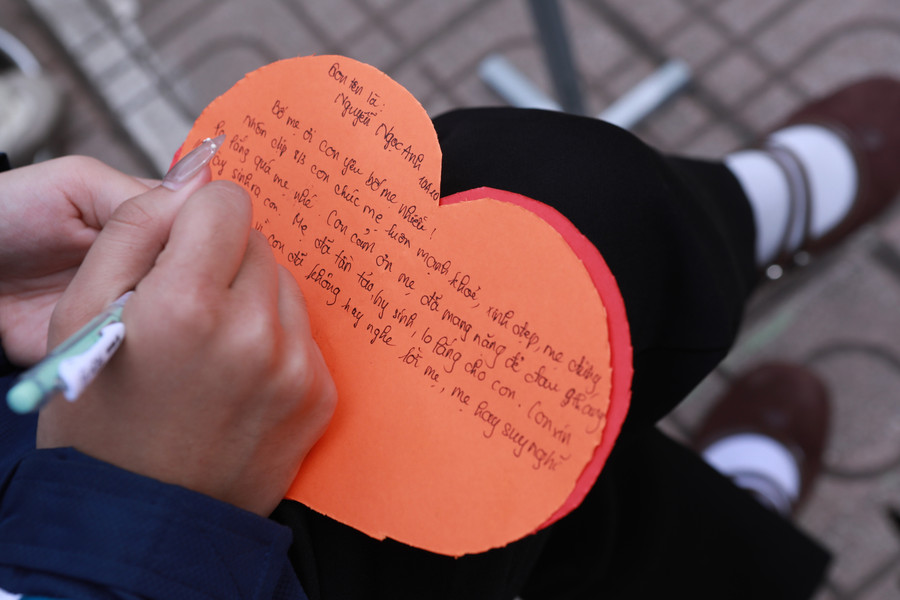 Con tên là:
Nguyễn Ngọc Anh 10A10
Bố mẹ ơi con yêu bố mẹ nhiều!
Nhân dịp 8/3 con chúc mẹ luôn mạnh khoẻ, xinh đẹp, mẹ đừng
lo lắng quá mẹ nhé. Con cảm ơn mẹ đã mang nặng đẻ đau 9 tháng
sinh ra con. Mẹ đã tần tảo hy sinh, lo lắng cho con. Con xin
con đã không hay nghe lời mẹ, mẹ hay suy nghĩ